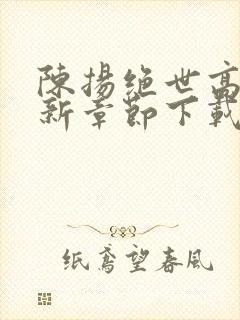 陳揚絕世高
新章節下載
纸鸢望春風